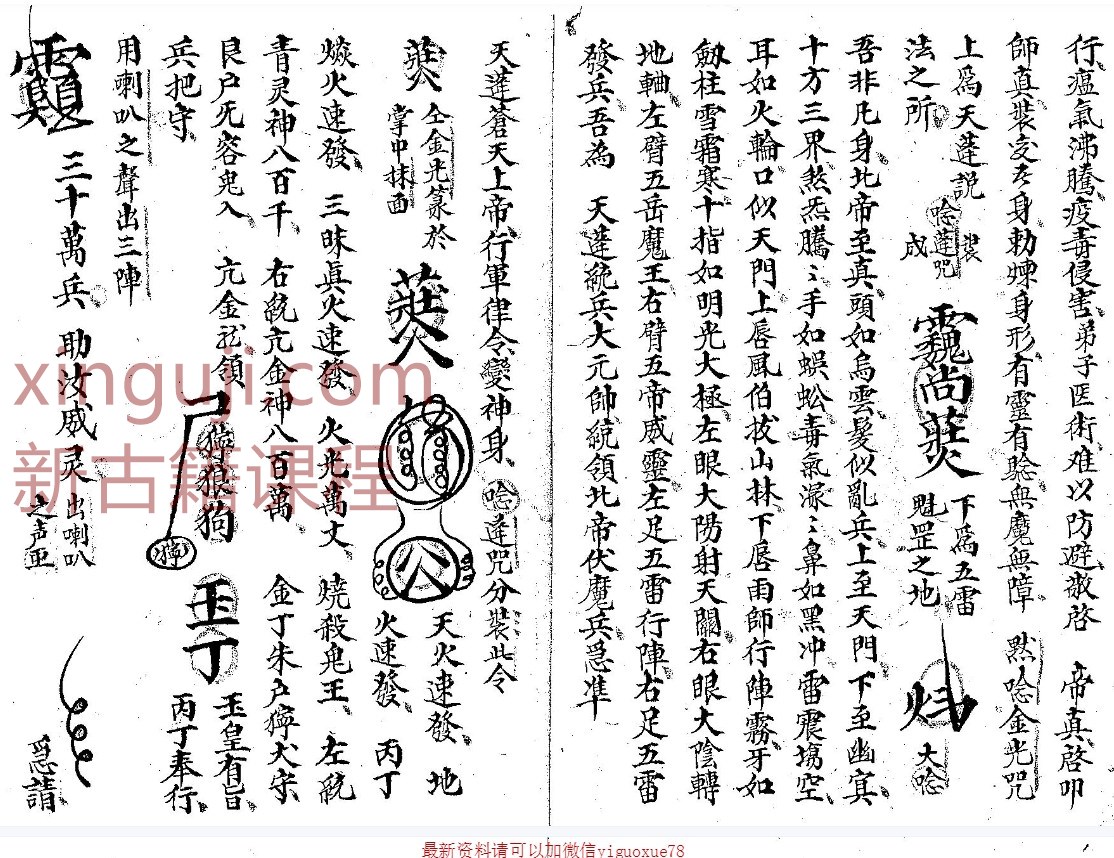 行瘟氣沸騰疫毒侵害弟子匡術难以防避敬啓 帝真啓叩
師真裝变吾身勅煉身形有靈有驗無魔無障 默唸金光咒
上爲天蓬説 唸蓬咒 裝成 下爲五雷
法之所 魁罡之地 大唸
吾非凡身北帝至真頭如烏雲髮似亂兵上至天門下至幽冥
十方三界煞炁騰〻手如蜈蚣毒氣濛〻鼻如黑冲雷震塲空
耳如火輪口似天門上唇風伯拔山林下唇雨師行陣霧牙如
劔柱雪霜寒十指如明光大極左眼大陽射天關右眼大陰轉
地軸左臂五岳魔王右臂五帝威靈左足五雷行陣右足五雷
發兵吾為 天蓬統兵大元帥統領北帝伏魔兵急准
天蓬蒼天上帝行軍律令變神身 唸蓬咒分裝此令
仝金光篆於 天火速發 地
掌中抹面 火速發 丙丁
燄火速發 三昧真火速發 火光萬丈 燒殺鬼王 左統
青灵神八百千 右統亢金神八百萬 金丁朱户獰犬守
艮户死容鬼入 亢金 領 獰狼狗 獰 玉丁 玉皇有旨
兵把守 丙丁奉行
用喇叭之聲出三陣
三十萬兵 助汝威灵 出喇叭 之声 急請
xinguji.com
新古籍课程
最新资料请可以加微信yiguoxue78